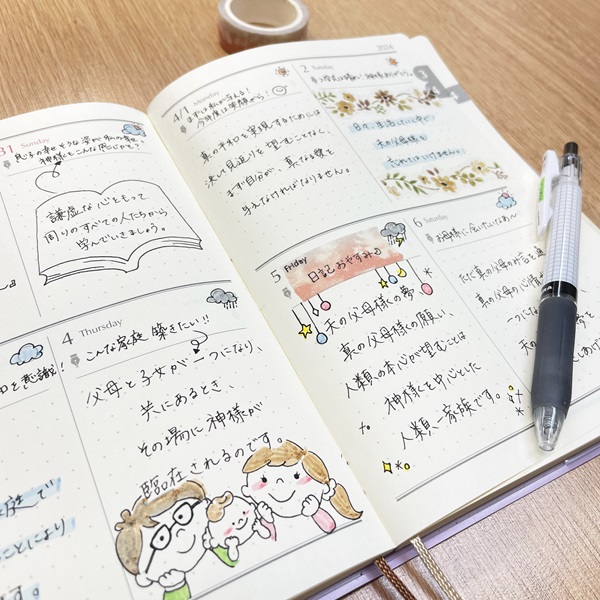 31 Sunday
息子の幸せそうな姿が私の幸せ
神様もこんな感じかな?
謙虚な心をもって
周りのすべての人たちから
学んでいきましょう。
を意識!
庭で
ことにより
す。
4 Thursday
こんな家庭 築きたい!!
父母と子女が一つになり、
共にあるとき、
その場に神様が
臨在されるのです。
2024
4/1 Monday
まずは私が与える!
今年度は笑顔から!
真の平和を実現するためには
決して見返りを望むことなく、
まず自分が、真なる愛を
与えなければなりません。
2 Tuesday
神様ありがとう。
日々、生活していく中で
真の父母様を
忘れてはいけません。
4
5 Friday
日記おやすみ♪
天の父母様の夢、
真の父母様の願い、
人類の本心が望むことは
神様を中心とした
人類一家族です。
6 Saturday
お母様に会いたいなあ〜
ただ真の父母のみ言を通
真の父母の心情
つにな
夢と
天の